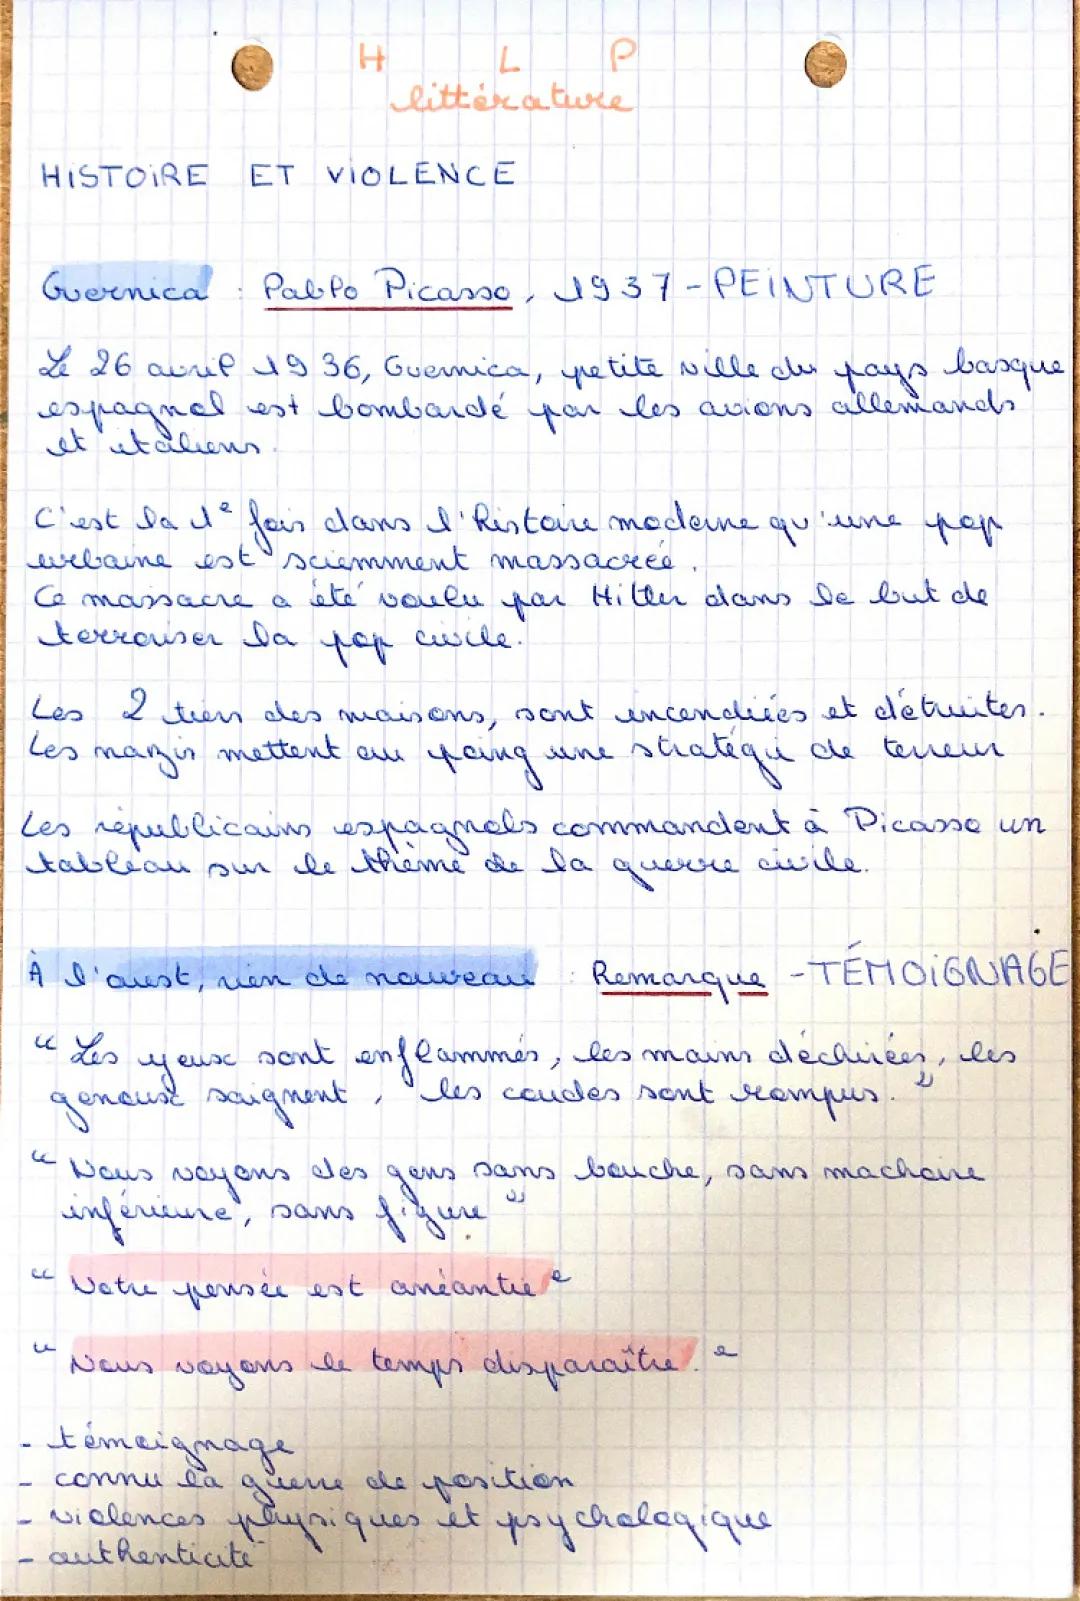 H L P
littérature
HISTOIRE ET VIOLENCE
Guernica : Pablo Picasso, 1937 - PEINTURE
Le 26 avril 1936, Guernica, petite ville du pays basque
espagnol est bombardé par les avions allemands
et italiens.
C'est la 1e fois dans l'histoire moderne qu'une pop
urbaine est sciemment massacrée.
Ce massacre a été voulu par Hitler dans le but de
terroriser la pop civile.
Les 2 tiers des maisons, sont incendiées et détruites.
Les nazis mettent au poing une stratégie de terreur
Les républicains espagnols commandent à Picasso un
tableau sur le thème de la guerre civile.
À l'ouest, rien de nouveau : Remarque - TÉMOIGNAGE
“ Les yeux sont enflammés, les mains déchirées, les
genoux saignent, les coudes sont rompus. ”
“ Nous voyons des gens sans bouche, sans machoire
inférieure, sans figure ”
“ Notre pensée est anéantie ”
“ Nous voyons le temps disparaître. ”
- témoignage
- connu la guerre de position
- violences physiques et psychologique
- authenticité